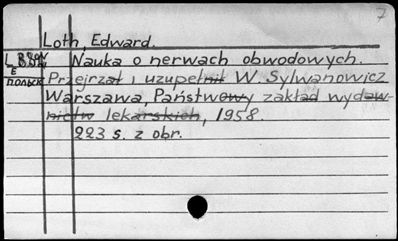 7
Loth, Edward.
Nauka o nerwach obwodowych.
Przejrzał i uzupełnił W. Sylwanowicz
Warszawa, Państwowy zakład wydaw-
nictw lekarskich, 1958.
223 s. z obr.